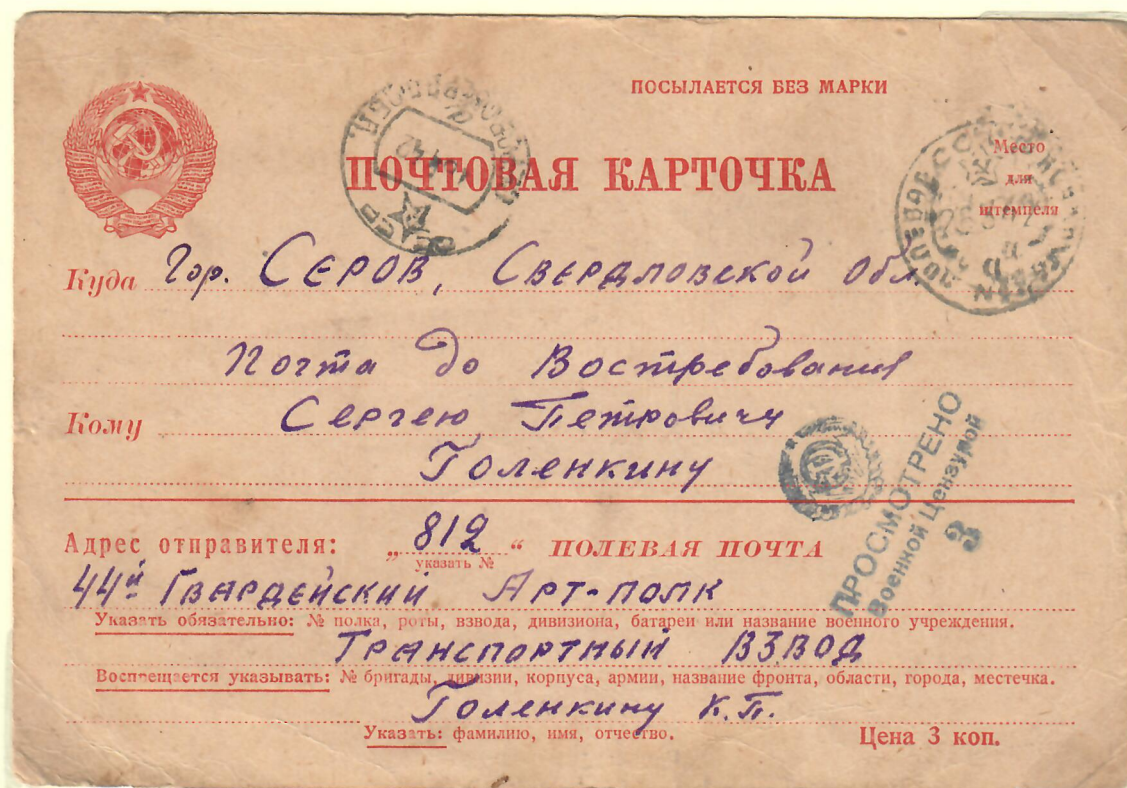 ПОСЫЛАЕТСЯ БЕЗ МАРКИ
ПОЧТОВАЯ КАРТОЧКА
Место
для
штемпеля
Куда Гор. Серов, Свердловской Обл.
Почта до Востребования
Кому Сергею Петровичу
Голенкину
ПРОСМОТРЕНО
Военной Цензурой
3
Адрес отправителя: „ 812 “ ПОЛЕВАЯ ПОЧТА
указать №
44й Гвардейский Арт-полк
Указать обязательно: № полка, роты, взвода, дивизиона, батареи или название военного учреждения.
Транспортный взвод
Воспрещается указывать: № бригады, дивизии, корпуса, армии, название фронта, области, города, местечка.
Голенкину К.П.
Указать: фамилию, имя, отчество.
Цена 3 коп.